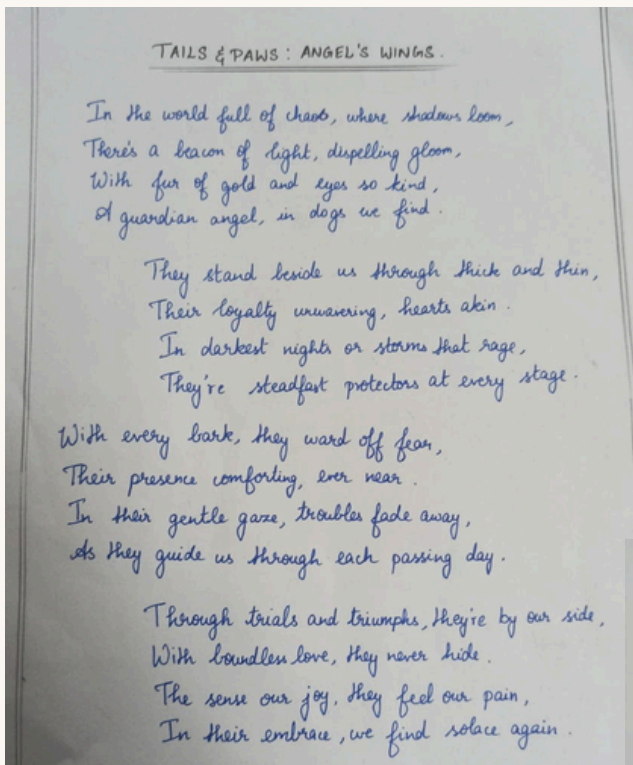 TAILS & PAWS : ANGEL'S WINGS.
In the world full of chaos, where shadows loom,
There's a beacon of light, dispelling gloom,
With fur of gold and eyes so kind,
A guardian angel, in dogs we find.
They stand beside us through thick and thin,
Their loyalty unwavering, hearts akin.
In darkest nights or storms that rage,
They're steadfast protectors at every stage.
With every bark, they ward off fear,
Their presence comforting, ever near.
In their gentle gaze, troubles fade away,
As they guide us through each passing day.
Through trials and triumphs, they're by our side,
With boundless love, they never hide.
The sense our joy, they feel our pain,
In their embrace, we find solace again.